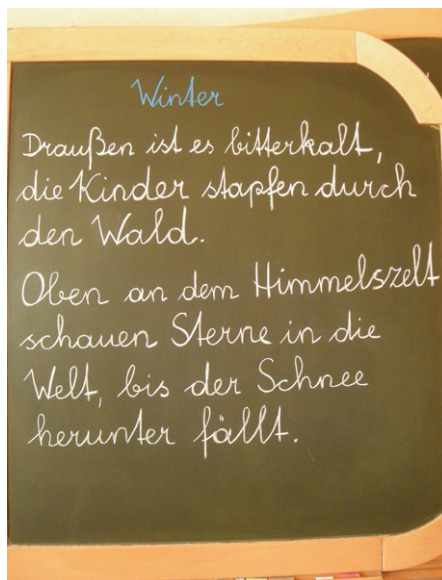 Winter
Draußen ist es bitterkalt,
die Kinder stapfen durch
den Wald.
Oben an dem Himmelszelt
schauen Sterne in die
Welt, bis der Schnee
herunter fällt.